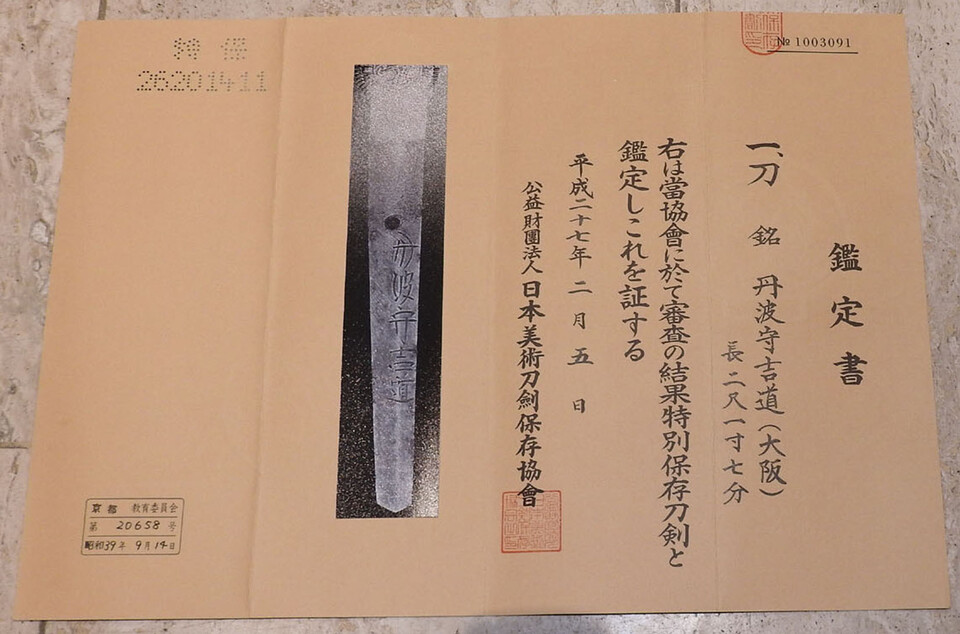 № 1003091
鑑定書
一、刀 銘 丹波守吉道(大阪)
長二尺一寸七分
右は當協會に於て審査の結果特別保存刀剣と
鑑定しこれを証する
平成二十七年二月五日
公益財團法人日本美術刀劍保存協會
丹波守吉道
特保
26201411
京都 教育委員会
第 20658 号
昭和39年 9月14日